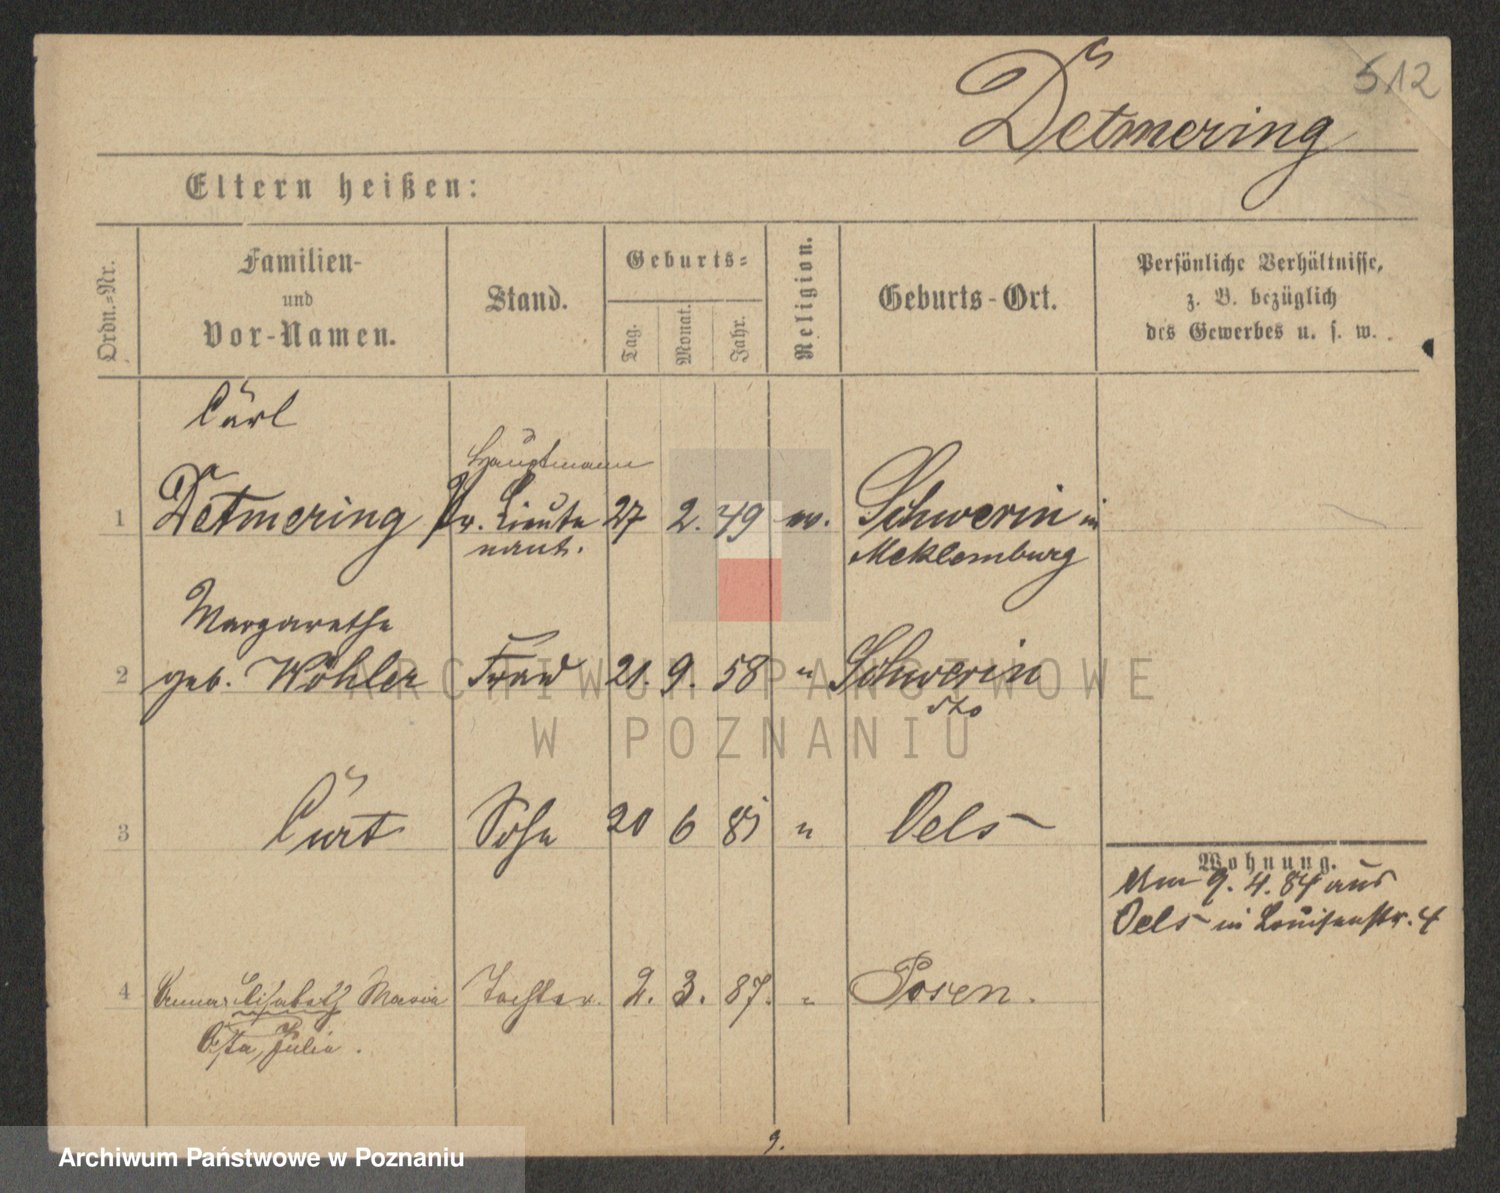 512
Detmering
Eltern heißen:
Ordn.=Nr.
Familien-
und
Vor-Namen.
Stand.
Geburts=
Tag.
Monat.
Jahr.
Religion.
Geburts-Ort.
Persönliche Verhältnisse,
z. B. bezüglich
des Gewerbes u. s. w.
Carl
Hauptmann
1 Detmering Pr. Lieute 27 2. 49 ev. Schwerin in
nant. Meklemburg
Margarethe
2 geb. Wöhler Frau 21. 9. 58 " Schwerin
dto
3 Curt Sohn 20 6 81 " Oels
Wohnung.
Am 9. 4. 84 aus
Oels in Louisenstr. 4
4 Anna Elisabeth Maria Tochter. 2. 3. 87. " Posen.
Julia.
9.
ARCHIWUM PAŃSTWOWE
W POZNANIU
Archiwum Państwowe w Poznaniu